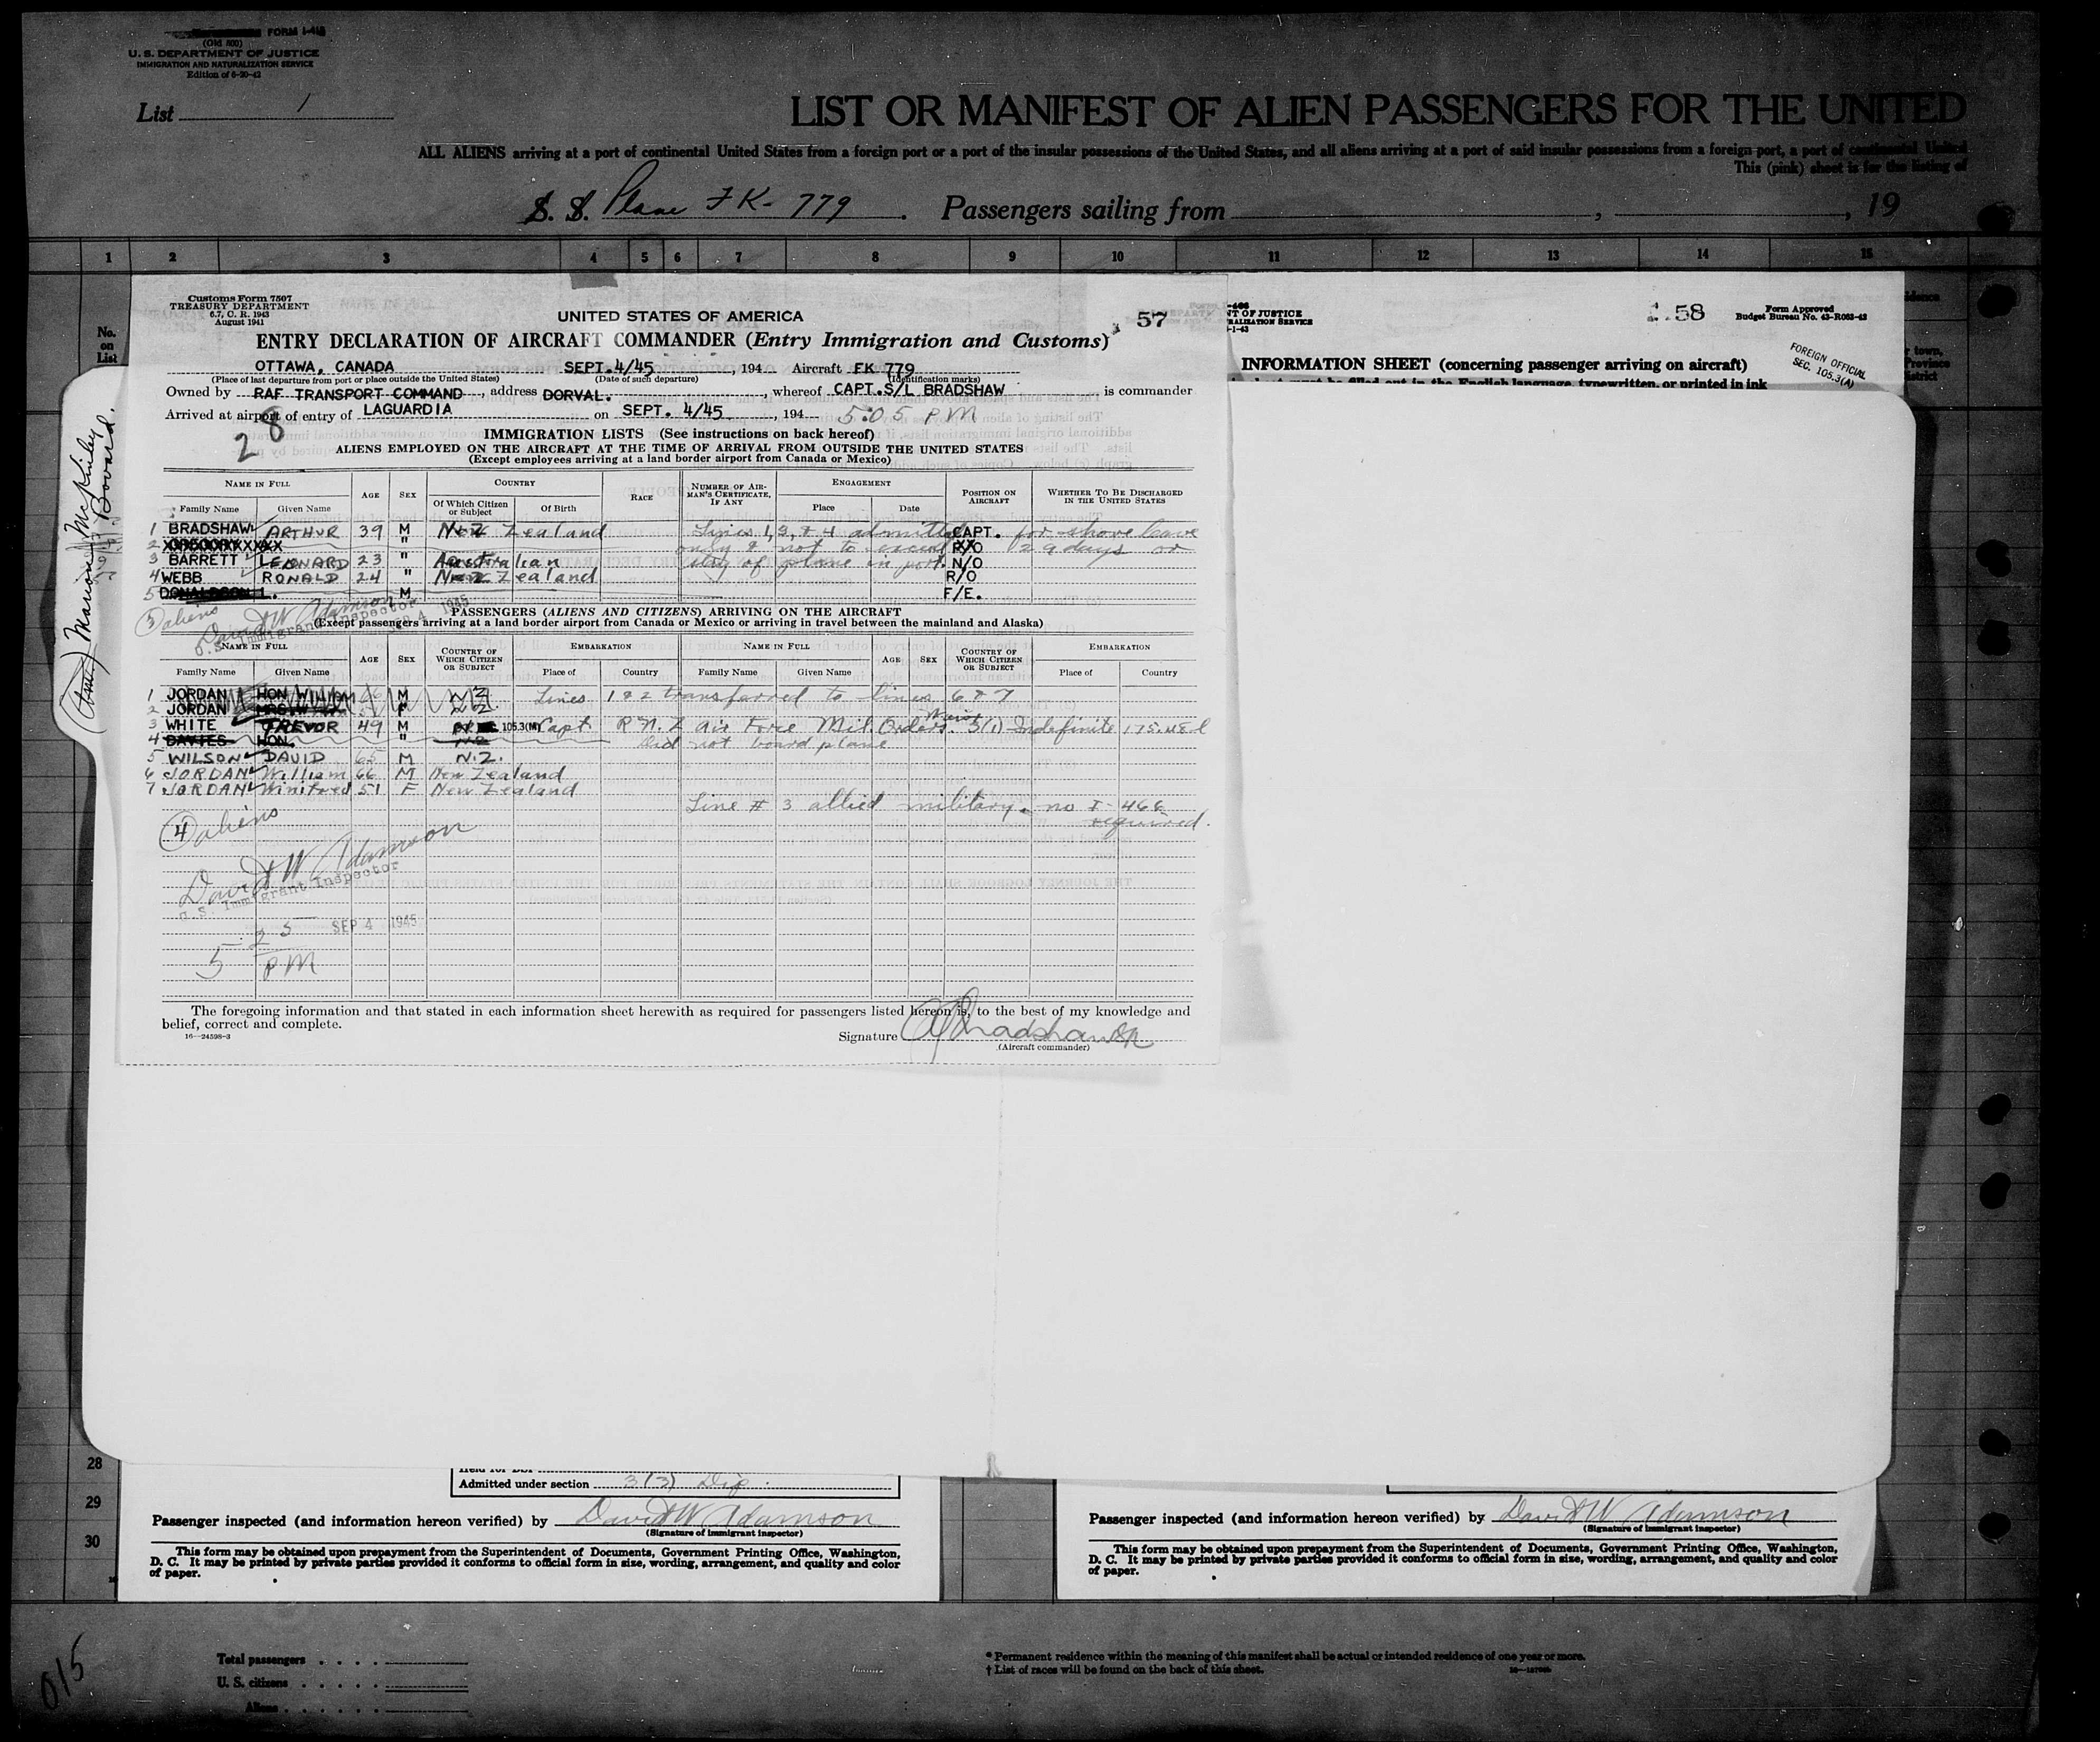 FORM I-415
(Old 500)
U. S. DEPARTMENT OF JUSTICE
IMMIGRATION AND NATURALIZATION SERVICE
Edition of 6-20-42
List 1
LIST OR MANIFEST OF ALIEN PASSENGERS FOR THE UNITED
ALL ALIENS arriving at a port of continental United States from a foreign port or a port of the insular possessions of the United States, and all aliens arriving at a port of said insular possessions from a foreign port, a port of continental United
This (pink) sheet is for the listing of
S. S. Plane FK- 779. Passengers sailing from , , 19
1 2 3 4 5 6 7 8 9 10 11 12 13 14 15
No. on List
Customs Form 7507
TREASURY DEPARTMENT
6.7, C. R. 1943
August 1941
UNITED STATES OF AMERICA
57
ENTRY DECLARATION OF AIRCRAFT COMMANDER (Entry Immigration and Customs)
OTTAWA, CANADA SEPT.4/45, 194 Aircraft FK 779
(Place of last departure from port or place outside the United States) (Date of such departure) (Identification marks)
Owned by RAF TRANSPORT COMMAND, address DORVAL., whereof CAPT.S/L BRADSHAW is commander
Arrived at airport of entry of LAGUARDIA on SEPT. 4/45, 194 5:05 PM
28
IMMIGRATION LISTS (See instructions on back hereof)
ALIENS EMPLOYED ON THE AIRCRAFT AT THE TIME OF ARRIVAL FROM OUTSIDE THE UNITED STATES
(Except employees arriving at a land border airport from Canada or Mexico)
NAME IN FULL AGE SEX COUNTRY RACE NUMBER OF AIRMAN'S CERTIFICATE, IF ANY ENGAGEMENT POSITION ON AIRCRAFT WHETHER TO BE DISCHARGED IN THE UNITED STATES
Family Name Given Name Of Which Citizen or Subject Of Birth Place Date
1 BRADSHAW ARTHUR 39 M New Zealand Lines 1, 3, & 4 admitted CAPT. for shore leave
2 " only & not to exceed R/O 29 days or
3 BARRETT LEONARD 23 " Australian stay of plane in port. N/O
4 WEBB RONALD 24 " New Zealand R/O
5 DONALDSON L. M F/E.
3 aliens
David W Adamson
U.S. Immigrant Inspector SEP 4 1945
PASSENGERS (ALIENS AND CITIZENS) ARRIVING ON THE AIRCRAFT
(Except passengers arriving at a land border airport from Canada or Mexico or arriving in travel between the mainland and Alaska)
NAME IN FULL AGE SEX COUNTRY OF WHICH CITIZEN OR SUBJECT EMBARKATION NAME IN FULL AGE SEX COUNTRY OF WHICH CITIZEN OR SUBJECT EMBARKATION
Family Name Given Name Place of Country Family Name Given Name Place of Country
1 JORDAN HON William 66 M N Z Lines 1 & 2 transferred to lines 6 & 7
2 JORDAN MRS.W F N Z
3 WHITE TREVOR 49 M 105.3(M) Capt R N. Z Air Force Mil. Orders. 3(1) Indefinite
4 DAVIES HON. " did not board plane
5 WILSON DAVID 65 M N.Z.
6 JORDAN William 66 M New Zealand
7 JORDAN Winifred 51 F New Zealand
Line # 3 allied military. no I-466
required.
4 aliens
David W Adamson
U.S. Immigrant Inspector
SEP 4 1945
5:25
PM
The foregoing information and that stated in each information sheet herewith as required for passengers listed hereon is, to the best of my knowledge and
belief, correct and complete.
16—24598-3
Signature A Bradshaw
(Aircraft commander)
T OF JUSTICE
58
Form Approved
Budget Bureau No. 43-R063-42
INFORMATION SHEET (concerning passenger arriving on aircraft)
FOREIGN OFFICIAL
SEC. 105.3(A)
(Aunt) Marion McKinley
Bovard.
28
29
30
Admitted under section 3(3) Dip.
Passenger inspected (and information hereon verified) by David W Adamson
(Signature of immigrant inspector)
This form may be obtained upon prepayment from the Superintendent of Documents, Government Printing Office, Washington,
D. C. It may be printed by private parties provided it conforms to official form in size, wording, arrangement, and quality and color
of paper.
Passenger inspected (and information hereon verified) by David W Adamson
(Signature of immigrant inspector)
This form may be obtained upon prepayment from the Superintendent of Documents, Government Printing Office, Washington,
D. C. It may be printed by private parties provided it conforms to official form in size, wording, arrangement, and quality and color
of paper.
015
Total passengers
U. S. citizens
Aliens
* Permanent residence within the meaning of this manifest shall be actual or intended residence of one year or more.
† List of races will be found on the back of this sheet.